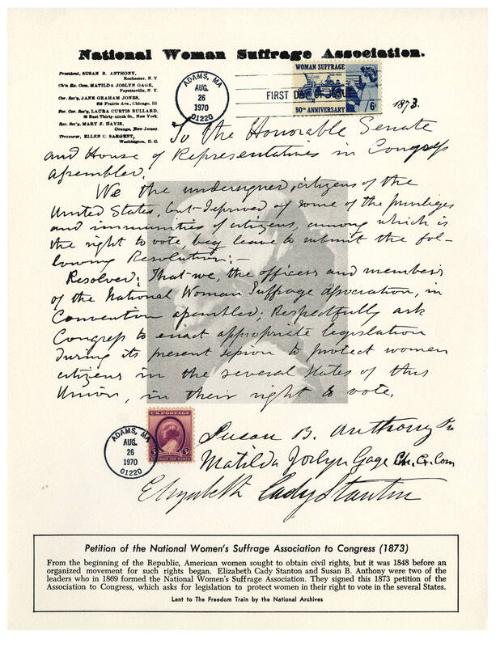 National Woman Suffrage Association.
President, SUSAN B. ANTHONY,
Rochester, N. Y
Ch'n Ex. Com. MATILDA JOSLYN GAGE,
Fayetteville, N. Y.
Cor. Sec'y, JANE GRAHAM JONES,
Prairie Ave., Chicago, Ill
Cor. Sec'y, LAURA CURTIS BULLARD,
East Thirty-ninth St., New York.
Rec. Sec'y, MARY F. DAVIS,
Orange, New Jersey
Treasurer, ELLEN C. SARGENT,
Washington, D. C.
ADAMS, MA
AUG.
26
1970
01220
WOMAN SUFFRAGE
FIRST DAY OF ISSUE
50TH ANNIVERSARY
6c
1873.
To the Honorable Senate
and House of Representatives in Congress
assembled:
We the undersigned, citizens of the
United States, but deprived of some of the privileges
and immunities of citizens, among which is
the right to vote, beg leave to submit the fol-
lowing Resolution:-
Resolved; That we, the officers and members
of the National Woman Suffrage Association, in
Convention assembled; Respectfully ask
Congress to enact appropriate legislation
during its present session to protect women
citizens in the several States of this
Union, in their right to vote.
U.S. POSTAGE
3c
ADAMS, MA
AUG.
26
1970
01220
Susan B. Anthony
Matilda Joslyn Gage Ch. Ex. Com
Elizabeth Cady Stanton
Petition of the National Women's Suffrage Association to Congress (1873)
From the beginning of the Republic, American women sought to obtain civil rights, but it was 1848 before an
organized movement for such rights began. Elizabeth Cady Stanton and Susan B. Anthony were two of the
leaders who in 1869 formed the National Women's Suffrage Association. They signed this 1873 petition of the
Association to Congress, which asks for legislation to protect women in their right to vote in the several States.
Lent to The Freedom Train by the National Archives